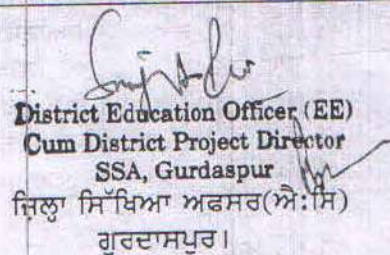 District Education Officer (EE)
Cum District Project Director
SSA, Gurdaspur
ਜ਼ਿਲ੍ਹਾ ਸਿੱਖਿਆ ਅਫਸਰ(ਐ:ਸਿ)
ਗੁਰਦਾਸਪੁਰ।